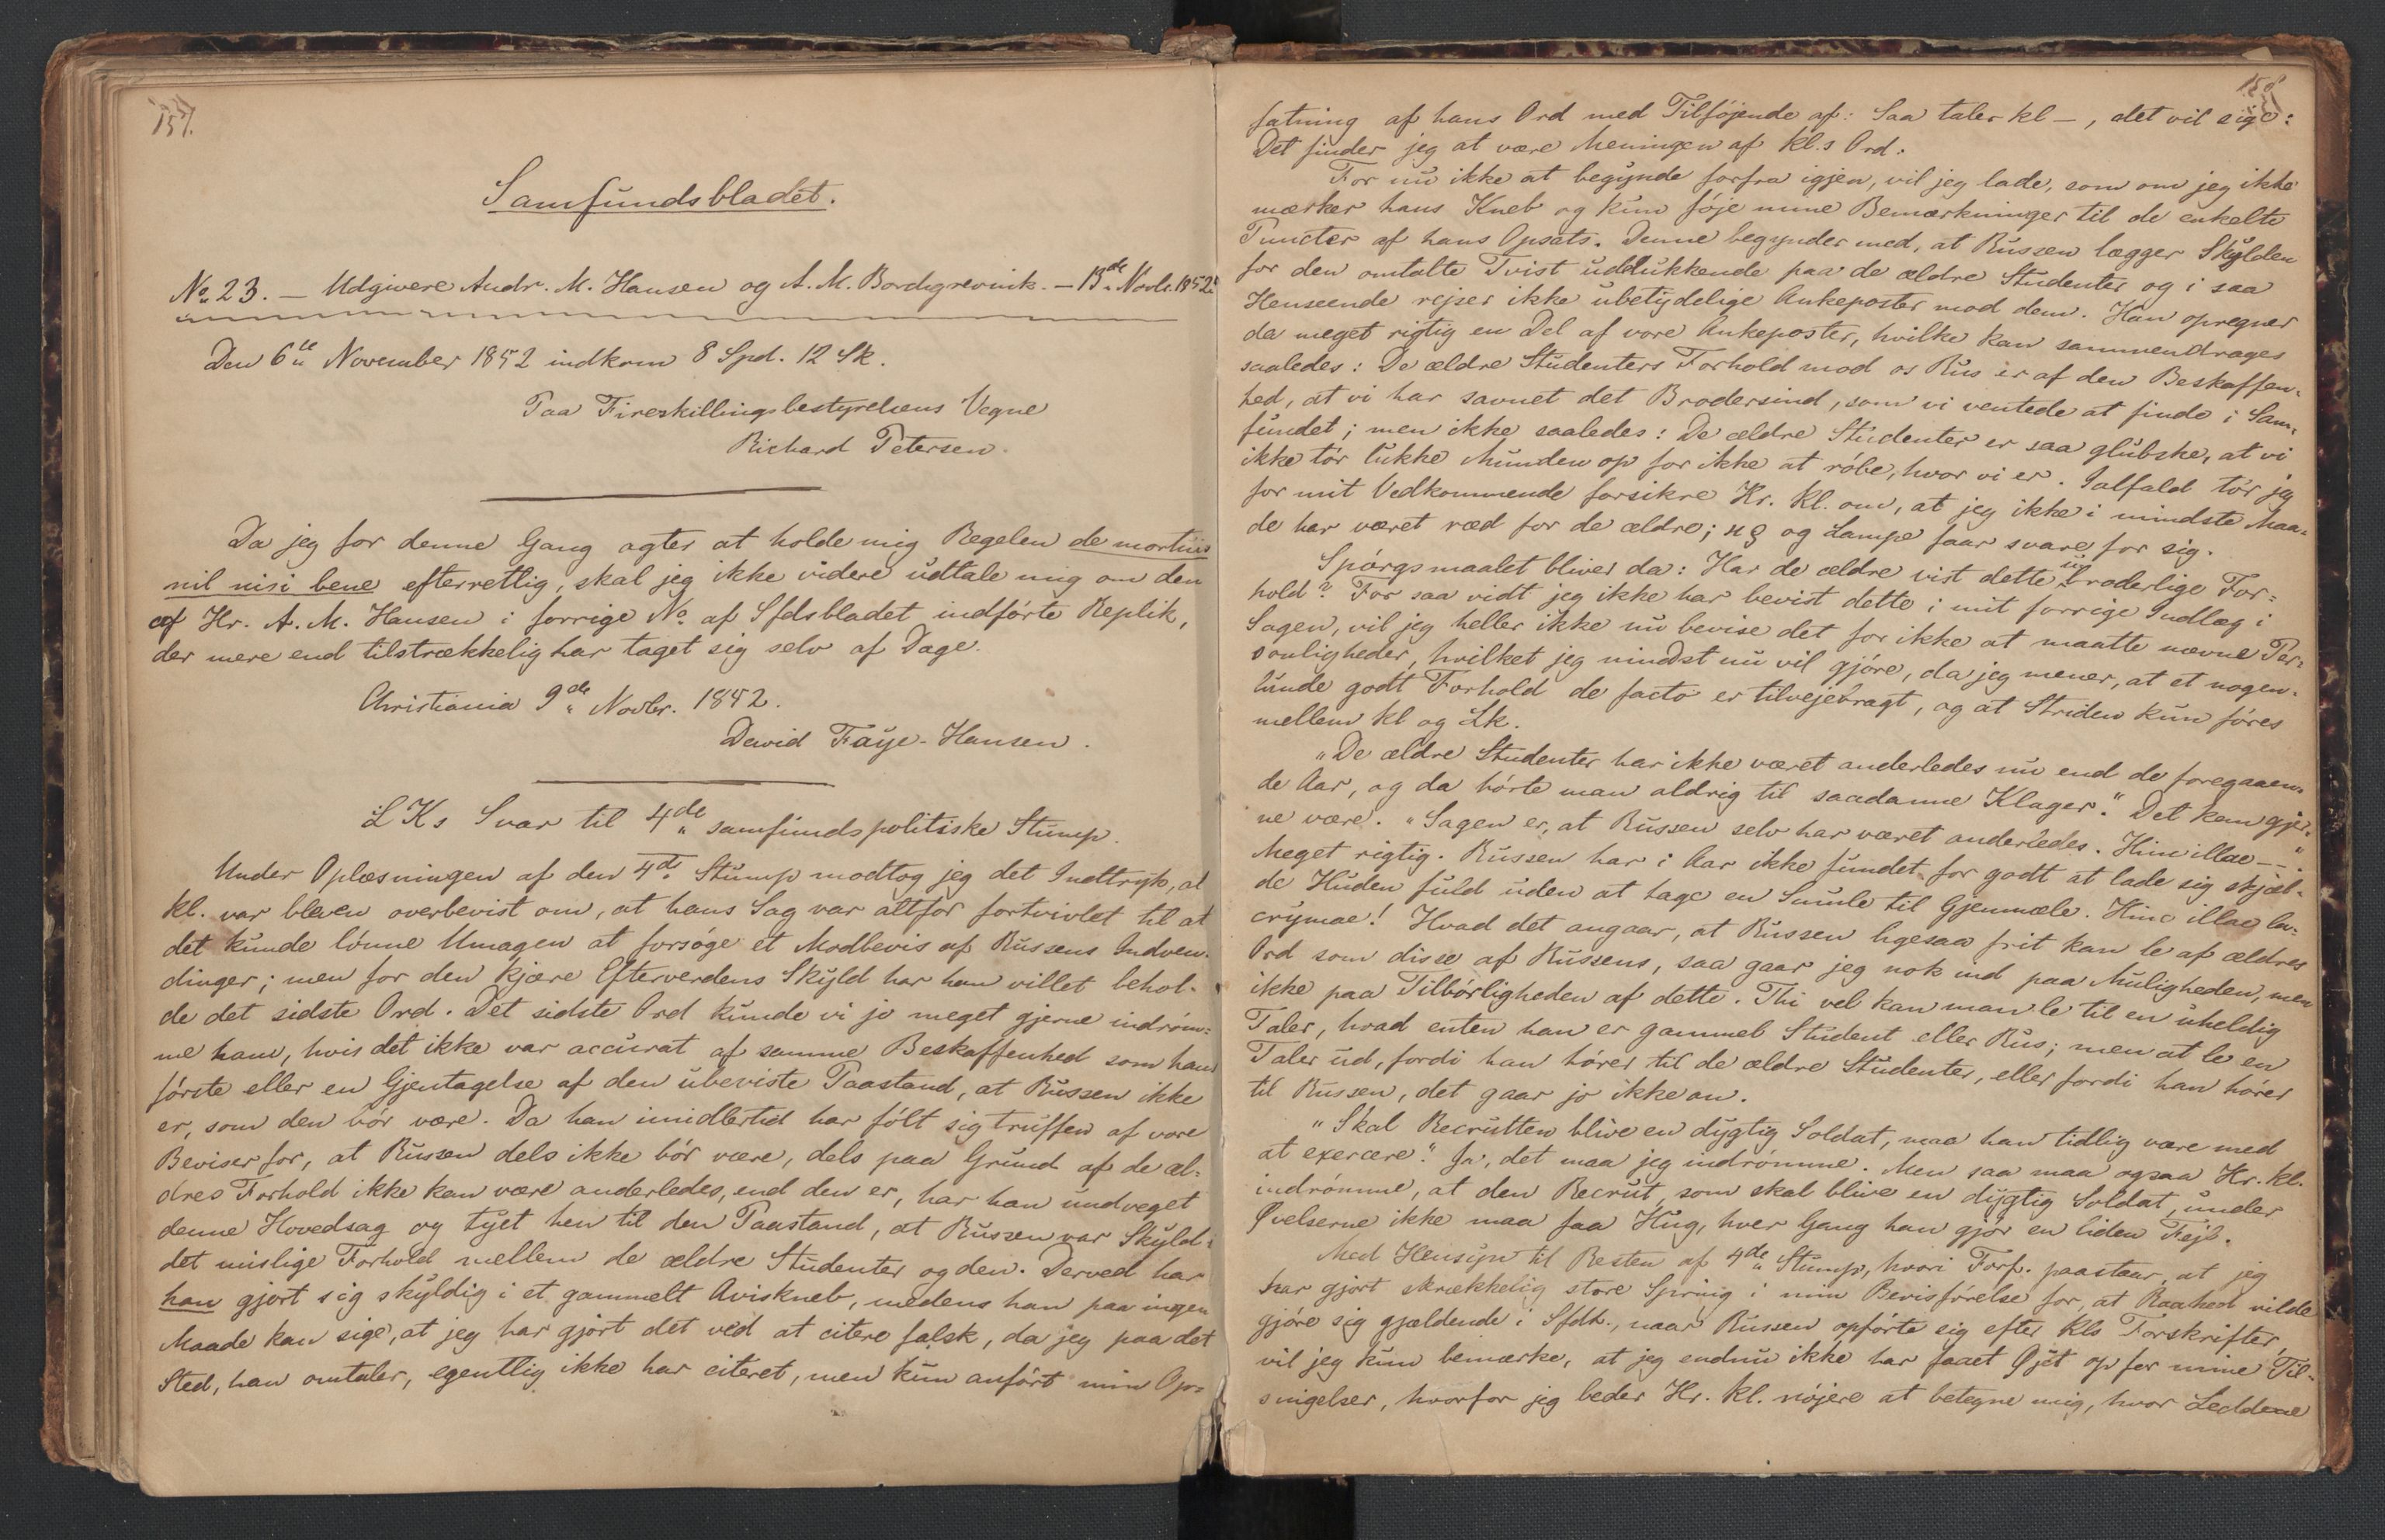 157.
Samfundsbladet.
No. 23. – Udgivere Andr. M. Hansen og A. M. Bordgrevink. – 13de Novbr. 1852.
Den 6te November 1852 indkom 8 Spd. 12 Sk.
Paa Fireskillingsbestyrelsens Vegne
Richard Petersen.
Da jeg for denne Gang agter at holde mig Regelen de mortuis
nil nisi bene efterrettlig, skal jeg ikke videre udtale mig om den
af Hr. A. M. Hansen i forrige No. af Sfdsbladet indførte Replik,
der mere end tilstrækkelig har taget sig selv af Dage.
Christiania 9de Novbr. 1852.
David Faye-Hansen.
LKs Svar til 4de samfundspolitiske Stump.
Under Oplæsningen af den 4de Stump modtog jeg det Indtryk, at
kl. var bleven overbevist om, at hans Sag var altfor fortvivlet til at
det kunde lønne Umagen at forsøge et Modbevis af Russens Indven-
dinger; men for den kjære Efterverdens Skyld har han villet behol-
de det sidste Ord. Det sidste Ord kunde vi jo meget gjerne indrøm-
me ham, hvis det ikke var accurat af samme Beskaffenhed som hans
første eller en Gjentagelse af den ubeviste Paastand, at Russen ikke
er, som den bør være. Da han imidlertid har følt sig truffen af vore
Beviser for, at Russen dels ikke bør være, dels paa Grund af de æl-
dres Forhold ikke kan være anderledes, end den er, har han undveget
denne Hovedsag og tyet hen til den Paastand, at Russen var Skyld i
det mislige Forhold mellem de ældre Studenter og den. Derved har
han gjort sig skyldig i et gammelt Aviskneb, medens han paa ingen
Maade kan sige, at jeg har gjort det ved at citere falsk, da jeg paa det
Sted, han omtaler, egentlig ikke har citeret, men kun anført min Op-
158
fatning af hans Ord med Tilføjende af: Saa taler kl –, det vil sige:
Det finder jeg at være Meningen af kl.s Ord.
For nu ikke at begynde forfra igjen, vil jeg lade, som om jeg ikke
mærker hans Kneb og kun føje mine Bemærkninger til de enkelte
Puncter af hans Opsats. Denne begynder med, at Russen lægger Skylden
for den omtalte Tvist uddlukkende paa de ældre Studenter og i saa
Henseende rejser ikke ubetydelige Ankeposter mod dem. Han opregner
da meget rigtig en Del af vore Ankeposter, hvilke kan sammendrages
saaledes: De ældre Studenters Forhold mod os Rus er af den Beskaffen-
hed, at vi har savnet det Brodersind, som vi ventede at finde i Sam-
fundet; men ikke saaledes: De ældre Studenter er saa glubske, at vi
ikke tør lukke Munden op for ikke at røbe, hvor vi er. Ialfald tør jeg
for mit Vedkommende forsikre Hr. kl. om, at jeg ikke i mindste Maa-
de har været ræd for de ældre; og Lampe faar svare for sig.
Spørgsmaalet bliver da: Har de ældre vist dette ubroderlige For-
hold? For saa vidt jeg ikke har bevist dette i mit forrige Indlæg i
Sagen, vil jeg heller ikke nu bevise det for ikke at maatte nævne Per-
sonligheder, hvilket jeg mindst nu vil gjøre, da jeg mener, at et nogen-
lunde godt Forhold de facto er tilvejebragt, og at Striden kun føres
mellem kl og Lk.
"De ældre Studenter har ikke været anderledes nu end de foregaaen-
de Aar, og da hørte man aldrig til saadanne Klager." Det kan gjer-
ne være. "Sagen er, at Russen selv har været anderledes. Hinc illae – –"
Meget rigtig. Russen har i Aar ikke fundet for godt at lade sig skjæl-
de Huden fuld uden at tage en Smule til Gjenmæle. Hinc illae la-
crymae! Hvad det angaar, at Russen ligesaa frit kan le af ældres
Ord som disse af Russens, saa gaar jeg nok ind paa Muligheden, men
ikke paa Tilbørligheden af dette. Thi vel kan man le til en uheldig
Taler, hvad enten han er gammel Student eller Rus; men at le en
Taler ud, fordi han hører til de ældre Studenter, eller fordi han hører
til Russen, det gaar jo ikke an.
"Skal Recrutten blive en dygtig Soldat, maa han tidlig være med
at exercere." Ja, det maa jeg indrømme. Men saa maa ogsaa Hr. kl.
indrømme, at den Recrut, som skal blive en dygtig Soldat, under
Øvelserne ikke maa faa Hug, hver Gang han gjør en liden Fejl.
Med Hensyn til Resten af 4de Stump, hvori Forf. paastaar, at jeg
har gjort skrækkelig store Spring i min Bevisførelse for, at Raahed vilde
gjøre sig gjældende i Sfdt., naar Russen opførte sig efter kls Forskrifter,
vil jeg kun bemærke, at jeg endnu ikke har faaet Øjet op for mine Til-
snigelser, hvorfor jeg beder Hr. kl. nøjere at betegne mig, hvor Leddene